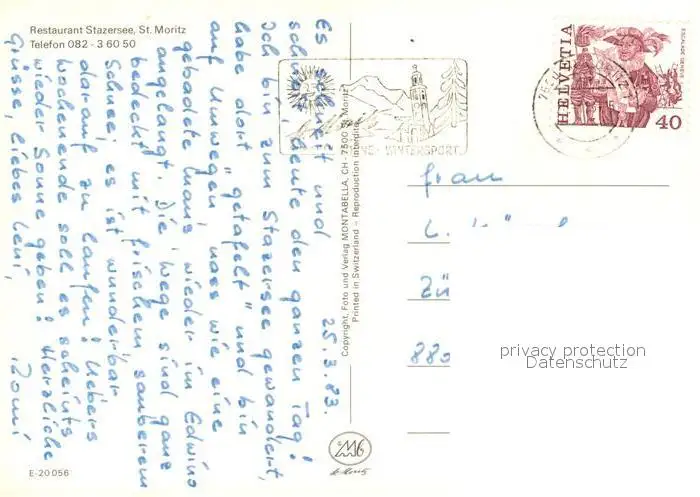 Restaurant Stazersee, St. Moritz
Telefon 082 - 3 60 50
25.3.83.
Es schneit und
schneit heute den ganzen Tag!
Ich bin zum Stazersee gewandert,
habe dort "getafelt" und bin
auf Umwegen, nass wie eine
gebadete Maus, wieder im Edwino
angelangt. Die Wege sind ganz
bedeckt mit frischem sauberem
Schnee; es ist wunderbar
darauf zu laufen! Uebers
Wochenende soll es scheints
wieder Sonne geben! Herzliche
Grüsse, liebes Leni,
Romi
Copyright, Foto und Verlag MONTABELLA, CH - 7500 St. Moritz
Printed in Switzerland – Reproduction interdite
E-20 056
WINTERSPORT
HELVETIA
ESCALADE GENÈVE
40
Frau
L.
Zü
880
privacy protection
Datenschutz
M6
St. Moritz